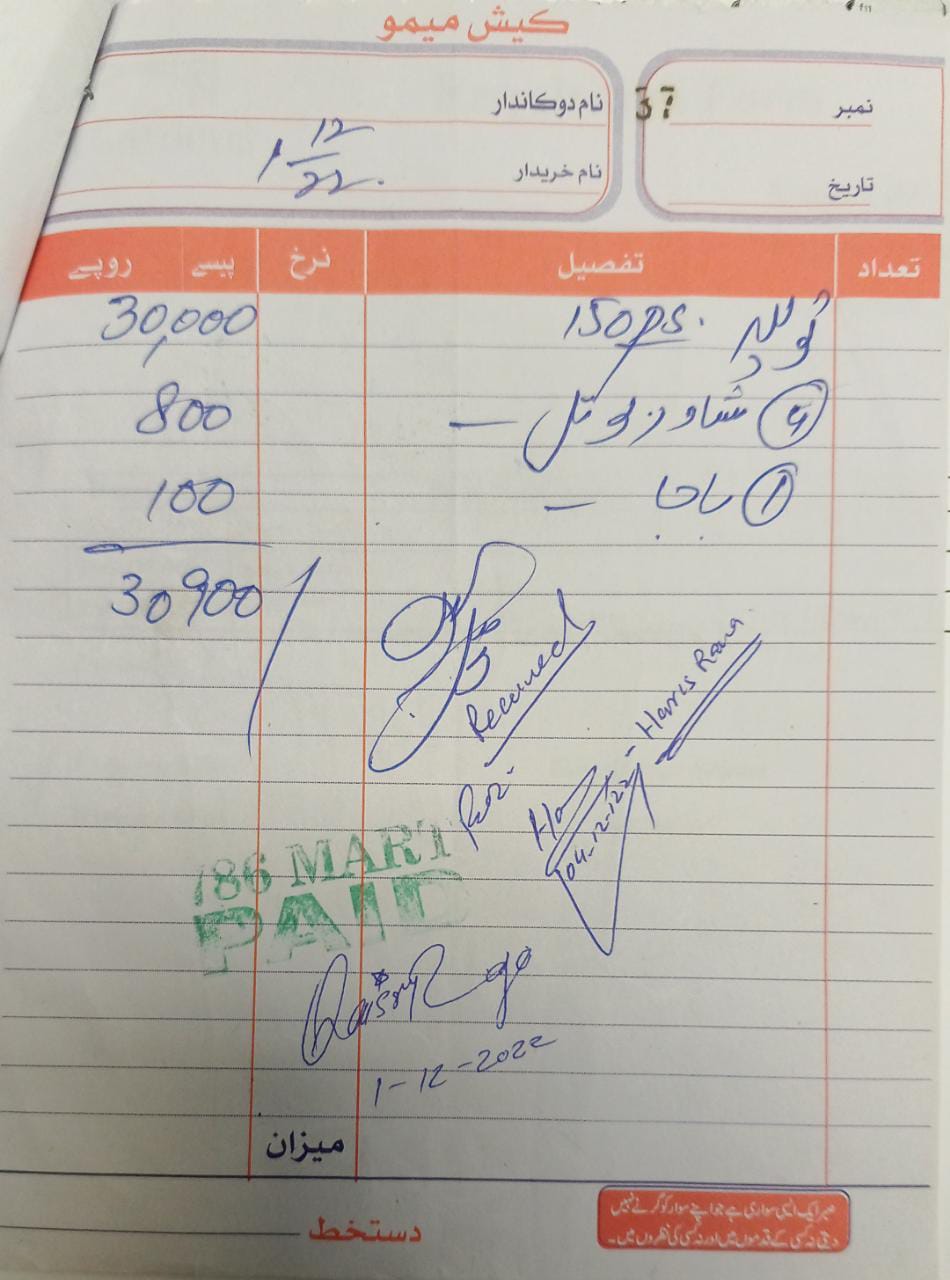 کیش میمو
نمبر 37
نام دوکاندار
تاریخ
نام خریدار 1 12/22
تعداد تفصیل نرخ پیسے روپے
150ps. 30,000
شاور بوتل — 800
① باجا — 100
30900/
Received
Harris Rana
04-12-122
786 MART
PAID
1-12-2022
میزان
صبر ایک ایسی سواری ہے جو اپنے سوار کو گرنے نہیں
دیتی نہ کسی کے قدموں میں اور نہ کسی کی نظروں میں۔
دستخط